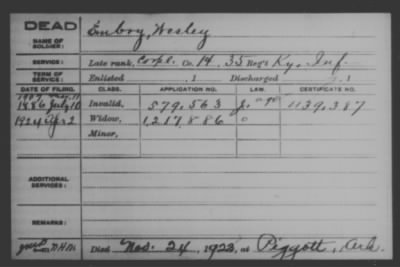 DEAD
NAME OF SOLDIER:
Embry, Wesley
SERVICE:
Late rank, Corpl. Co. H, 35 Reg't Ky. Inf.
TERM OF SERVICE:
Enlisted , 1 Discharged , 1
DATE OF FILING. CLASS. APPLICATION NO. LAW. CERTIFICATE NO.
1886 July 10 Invalid, 579.563 1139.387
1924 Apr 2 Widow, 1,217,886
Minor,
ADDITIONAL SERVICES:
REMARKS:
Died Nov. 24, 1923, at Piggott, Ark.